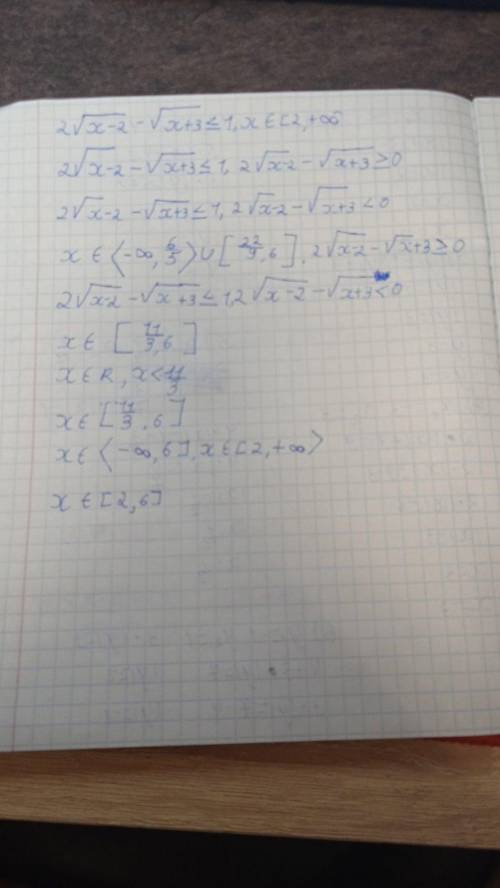 2√x-2 - √x+3 ≤ 1, x ∈ [2,+∞
2√x-2 - √x+3 ≤ 1, 2√x-2 - √x+3 ≥ 0
2√x-2 - √x+3 ≤ 1, 2√x-2 - √x+3 < 0
x ∈ ⟨-∞, 6/5⟩ ∪ [22/9, 6], 2√x-2 - √x+3 ≥ 0
2√x-2 - √x+3 ≤ 1, 2√x-2 - √x+3 < 0
x ∈ [11/3, 6]
x ∈ R, x < 11/3
x ∈ [11/3, 6]
x ∈ ⟨-∞, 6], x ∈ [2, +∞⟩
x ∈ [2, 6]